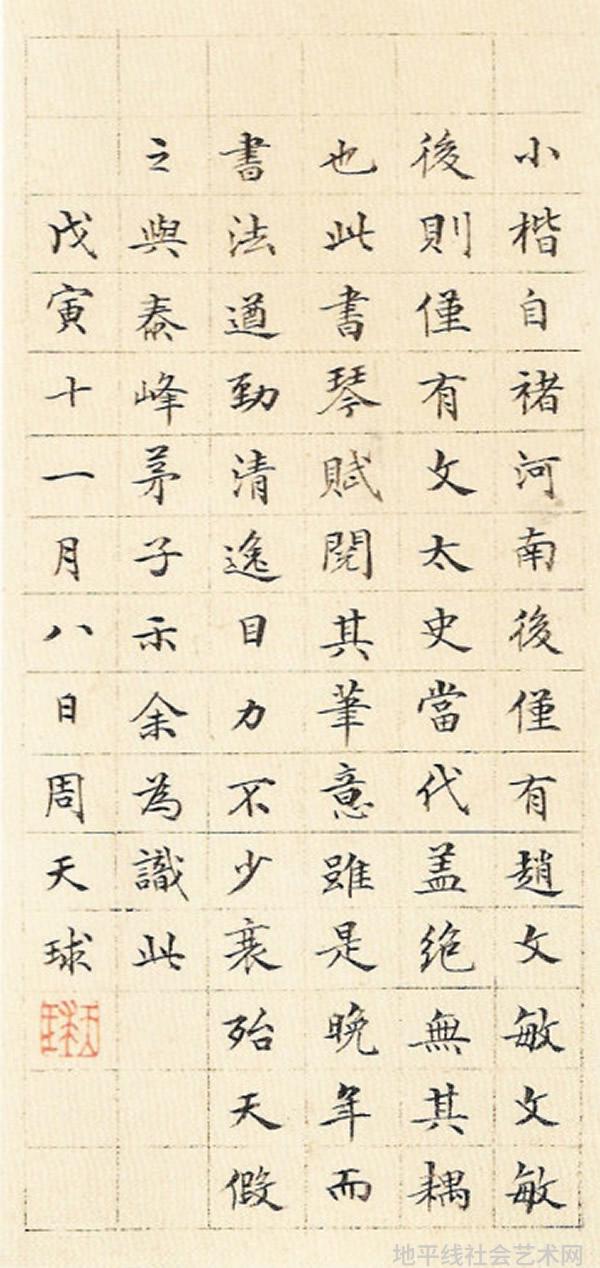 小楷自褚河南後僅有趙文敏文敏
後則僅有文太史當代盖絶無其耦
也此書琴賦閱其筆意雖是晚年而
書法遒勁清逸目力不少衰殆天假
之與泰峰茅子示余為識此
戊寅十一月八日周天球
地平线社会艺术网